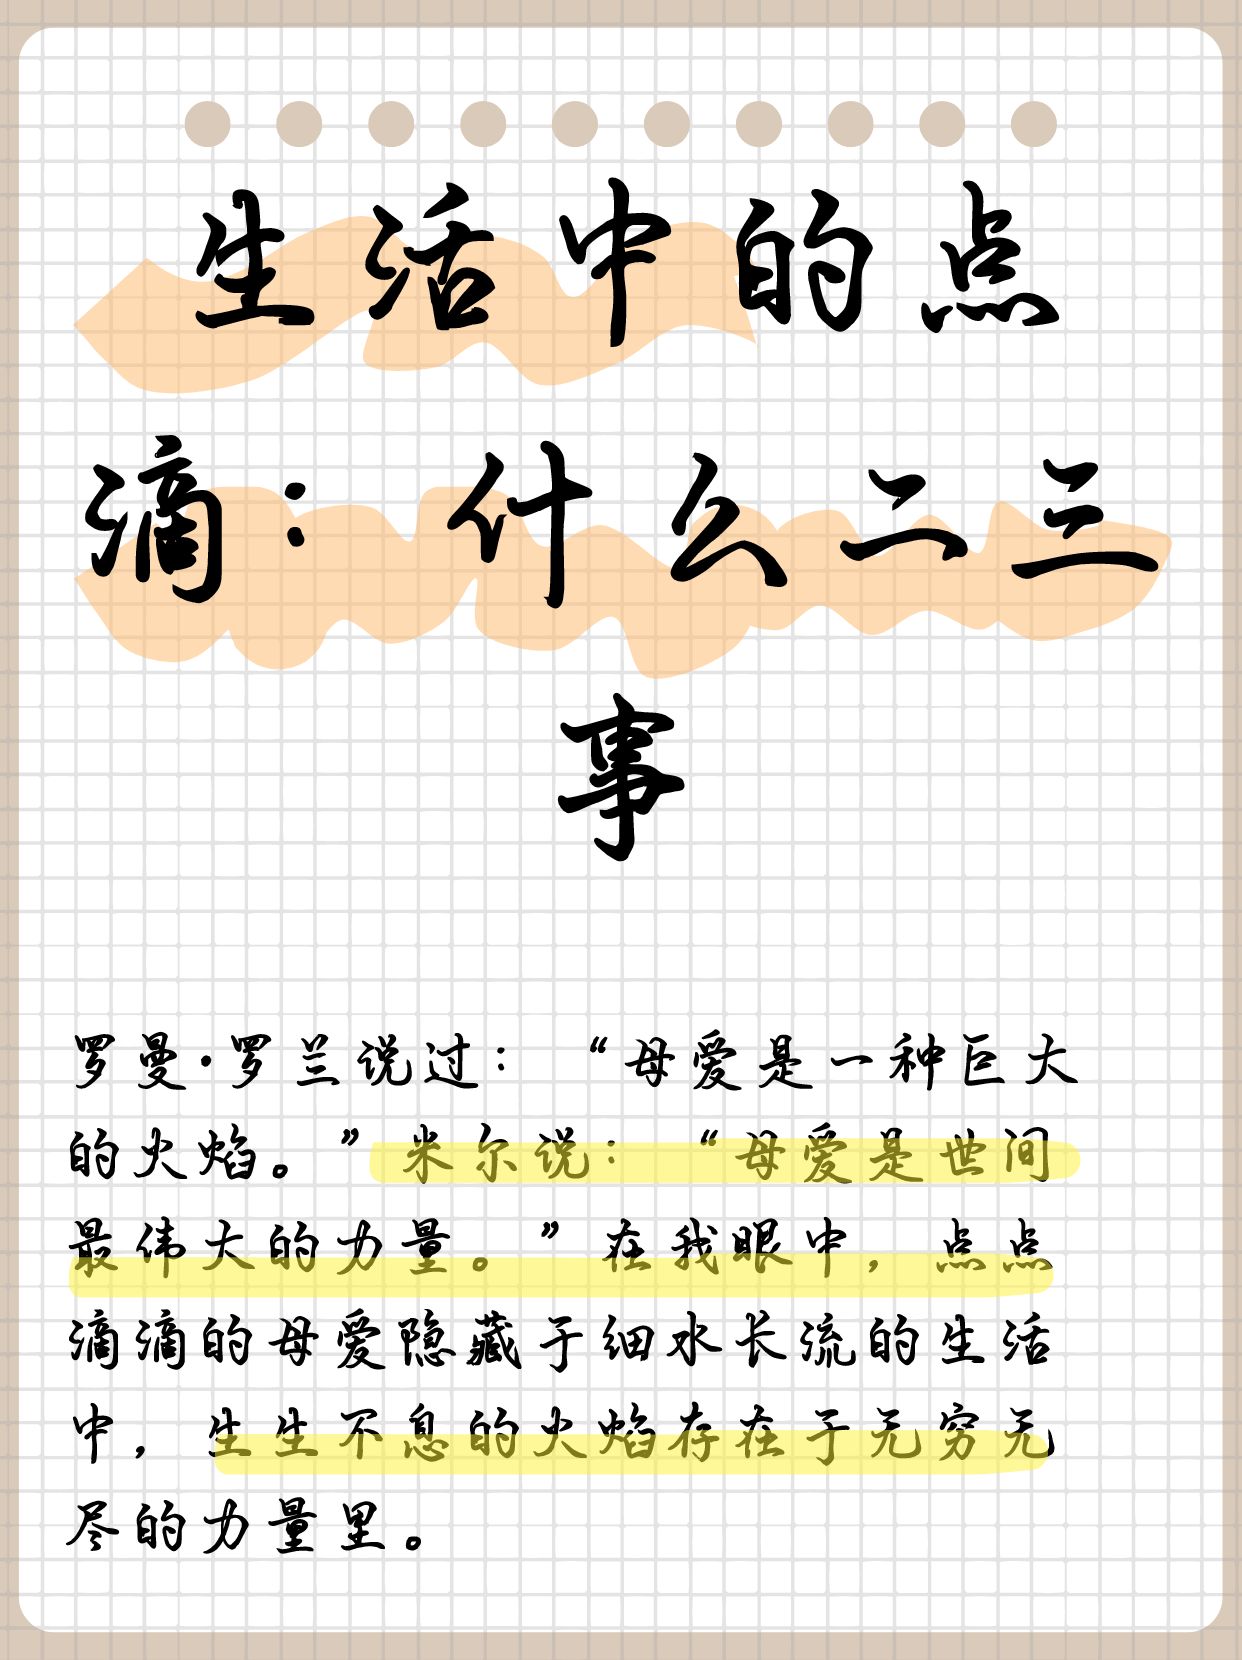 生活中的点
滴：什么二三
事
罗曼·罗兰说过：“母爱是一种巨大
的火焰。”米尔说：“母爱是世间
最伟大的力量。”在我眼中，点点
滴滴的母爱隐藏于细水长流的生活
中，生生不息的火焰存在于无穷无
尽的力量里。